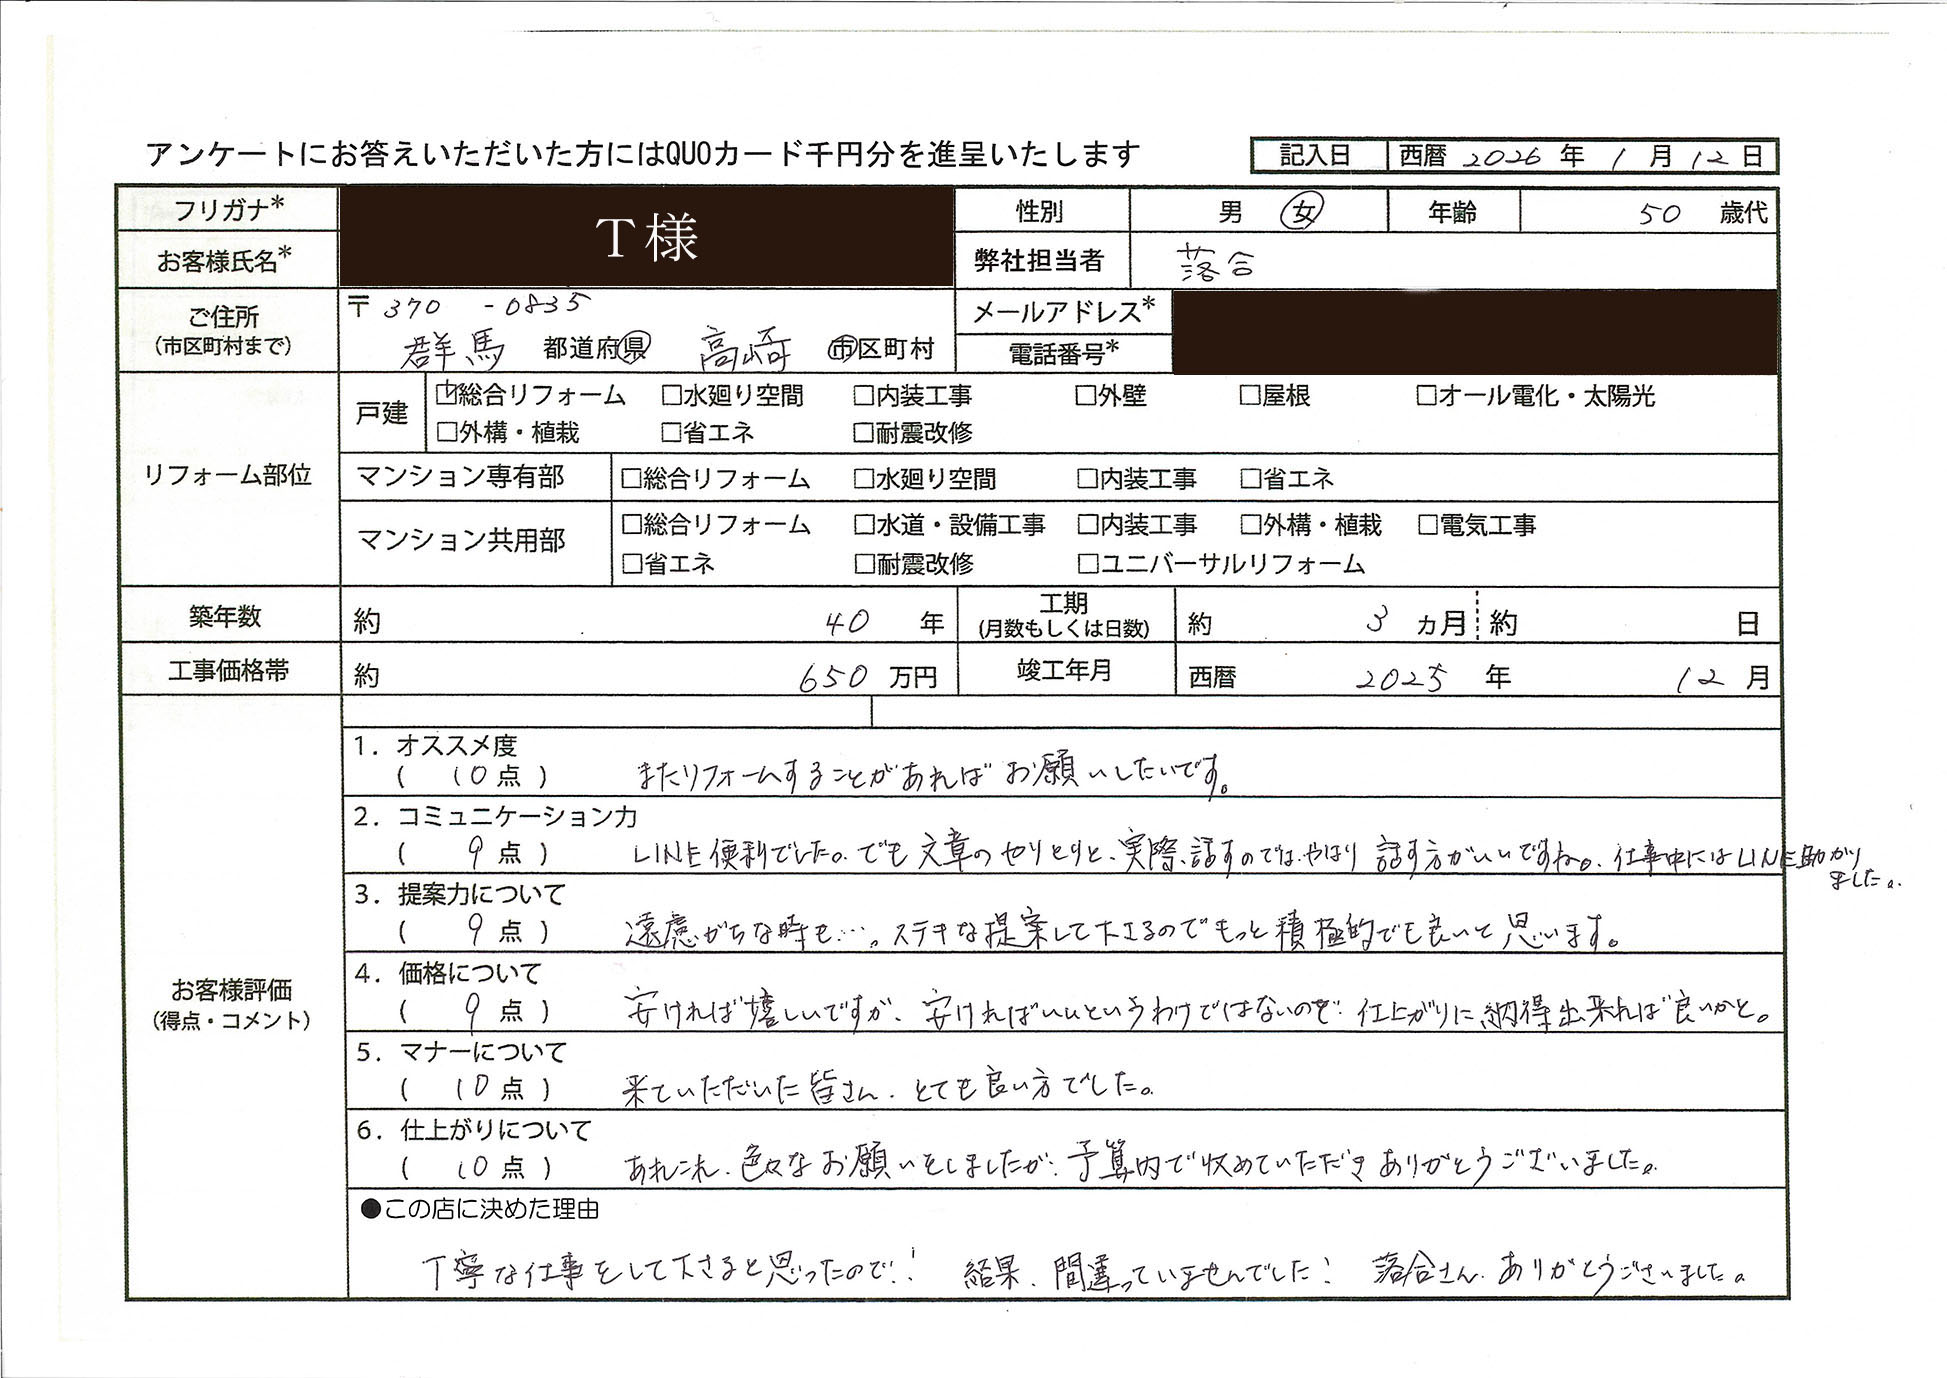 アンケートにお答えいただいた方にはQUOカード千円分を進呈いたします
記入日 西暦 2026 年 1 月 12 日
フリガナ* T様 性別 男 女 年齢 50 歳代
お客様氏名* 弊社担当者 落合
ご住所 (市区町村まで) 〒 370 - 0835 メールアドレス*
群馬 都道府県 高崎 市区町村 電話番号*
リフォーム部位
戸建 ☑総合リフォーム □水廻り空間 □内装工事 □外壁 □屋根 □オール電化・太陽光
□外構・植栽 □省エネ □耐震改修
マンション専有部 □総合リフォーム □水廻り空間 □内装工事 □省エネ
マンション共用部 □総合リフォーム □水道・設備工事 □内装工事 □外構・植栽 □電気工事
□省エネ □耐震改修 □ユニバーサルリフォーム
築年数 約 40 年 工期 (月数もしくは日数) 約 3 ヵ月 約 日
工事価格帯 約 650 万円 竣工年月 西暦 2025 年 12 月
お客様評価 (得点・コメント)
1. オススメ度
( 10 点 ) またリフォームすることがあればお願いしたいです。
2. コミュニケーション力
( 9 点 ) LINE便利でした。でも文章のやりとりと、実際、話すのでは、やはり話す方がいいですね。仕事中にはLINE助かり
ました。
3. 提案力について
( 9 点 ) 遠慮がちな時も…。ステキな提案して下さるのでもっと積極的でも良いと思います。
4. 価格について
( 9 点 ) 安ければ嬉しいですが、安ければいいというわけではないので、仕上がりに納得出来れば良いかと。
5. マナーについて
( 10 点 ) 来ていただいた皆さん、とても良い方でした。
6. 仕上がりについて
( 10 点 ) あれこれ、色々なお願いをしましたが、予算内で収めていただきありがとうございました。
●この店に決めた理由
丁寧な仕事をして下さると思ったので!! 結果、間違っていませんでした! 落合さん、ありがとうございました。